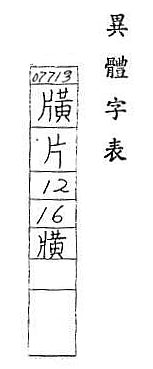 異體字表
07713
片
12
16